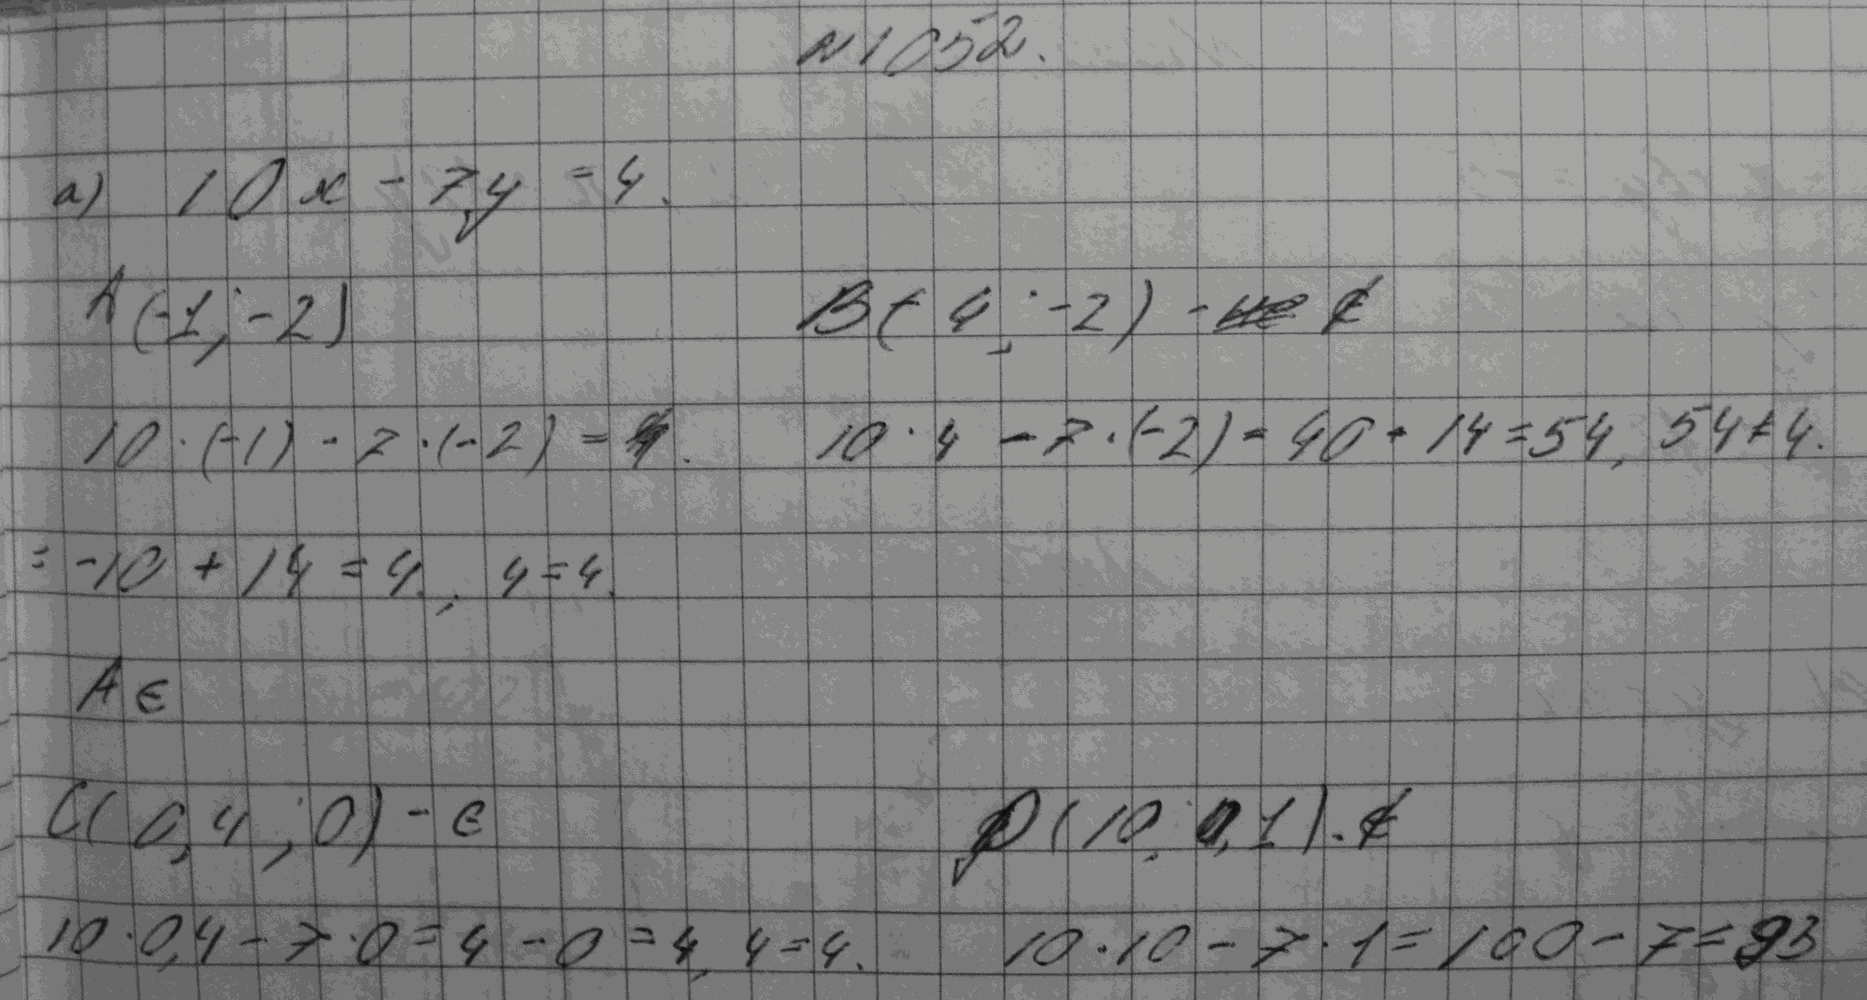 №1052.
а) 10x - 7y = 4.
A(-1; -2)
B(4; -2) - ∉
10·(-1) - 7·(-2) = 4.
10·4 - 7·(-2) = 40 + 14 = 54, 54≠4.
= -10 + 14 = 4, 4=4.
A ∈
C(0,4; 0) - ∈
D(10; 0,1). ∉
10·0,4 - 7·0 = 4 - 0 = 4, 4=4.
10·10 - 7·1 = 100 - 7 = 93